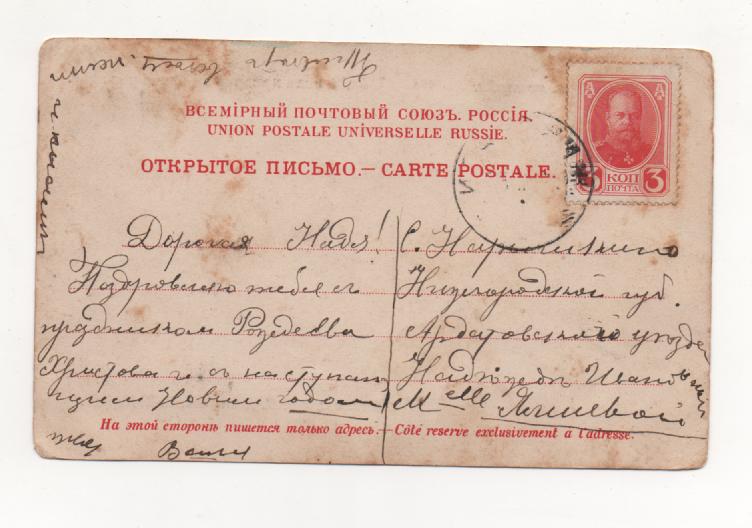 ВСЕМІРНЫЙ ПОЧТОВЫЙ СОЮЗЪ. РОССІЯ.
UNION POSTALE UNIVERSELLE RUSSIE.
ОТКРЫТОЕ ПИСЬМО.— CARTE POSTALE.
3 КОП 3
ПОЧТА
Дорогая Надя!
Поздровляю тебя съ
праздником Рождества
Христова и съ наступаю
щим Новым годом
С. Нарышкино
Нижегородской губ.
Ардатовского уезда
Надежде Ивановной
Melle
На этой сторонѣ пишется только адресъ.— Côté reserve exclusivement a l'adresse.